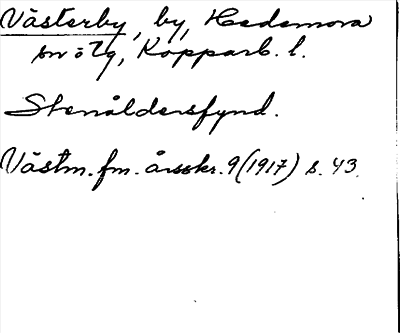 Västerby, by, Hedemora
sn o tg, Kopparb. l.
Stenåldersfynd.
Västm. fm. årsskr. 9 (1917) s. 43.